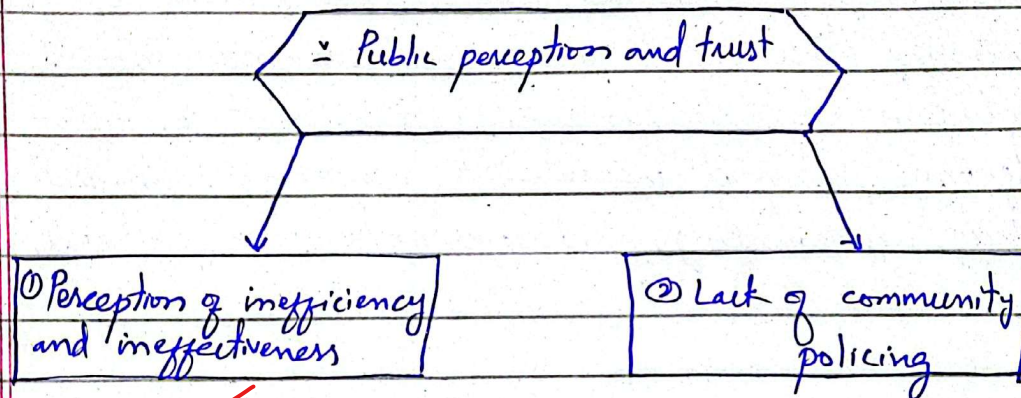 ⩡ Public perception and trust
① Perception of inefficiency
and ineffectiveness
② Lack of community
policing